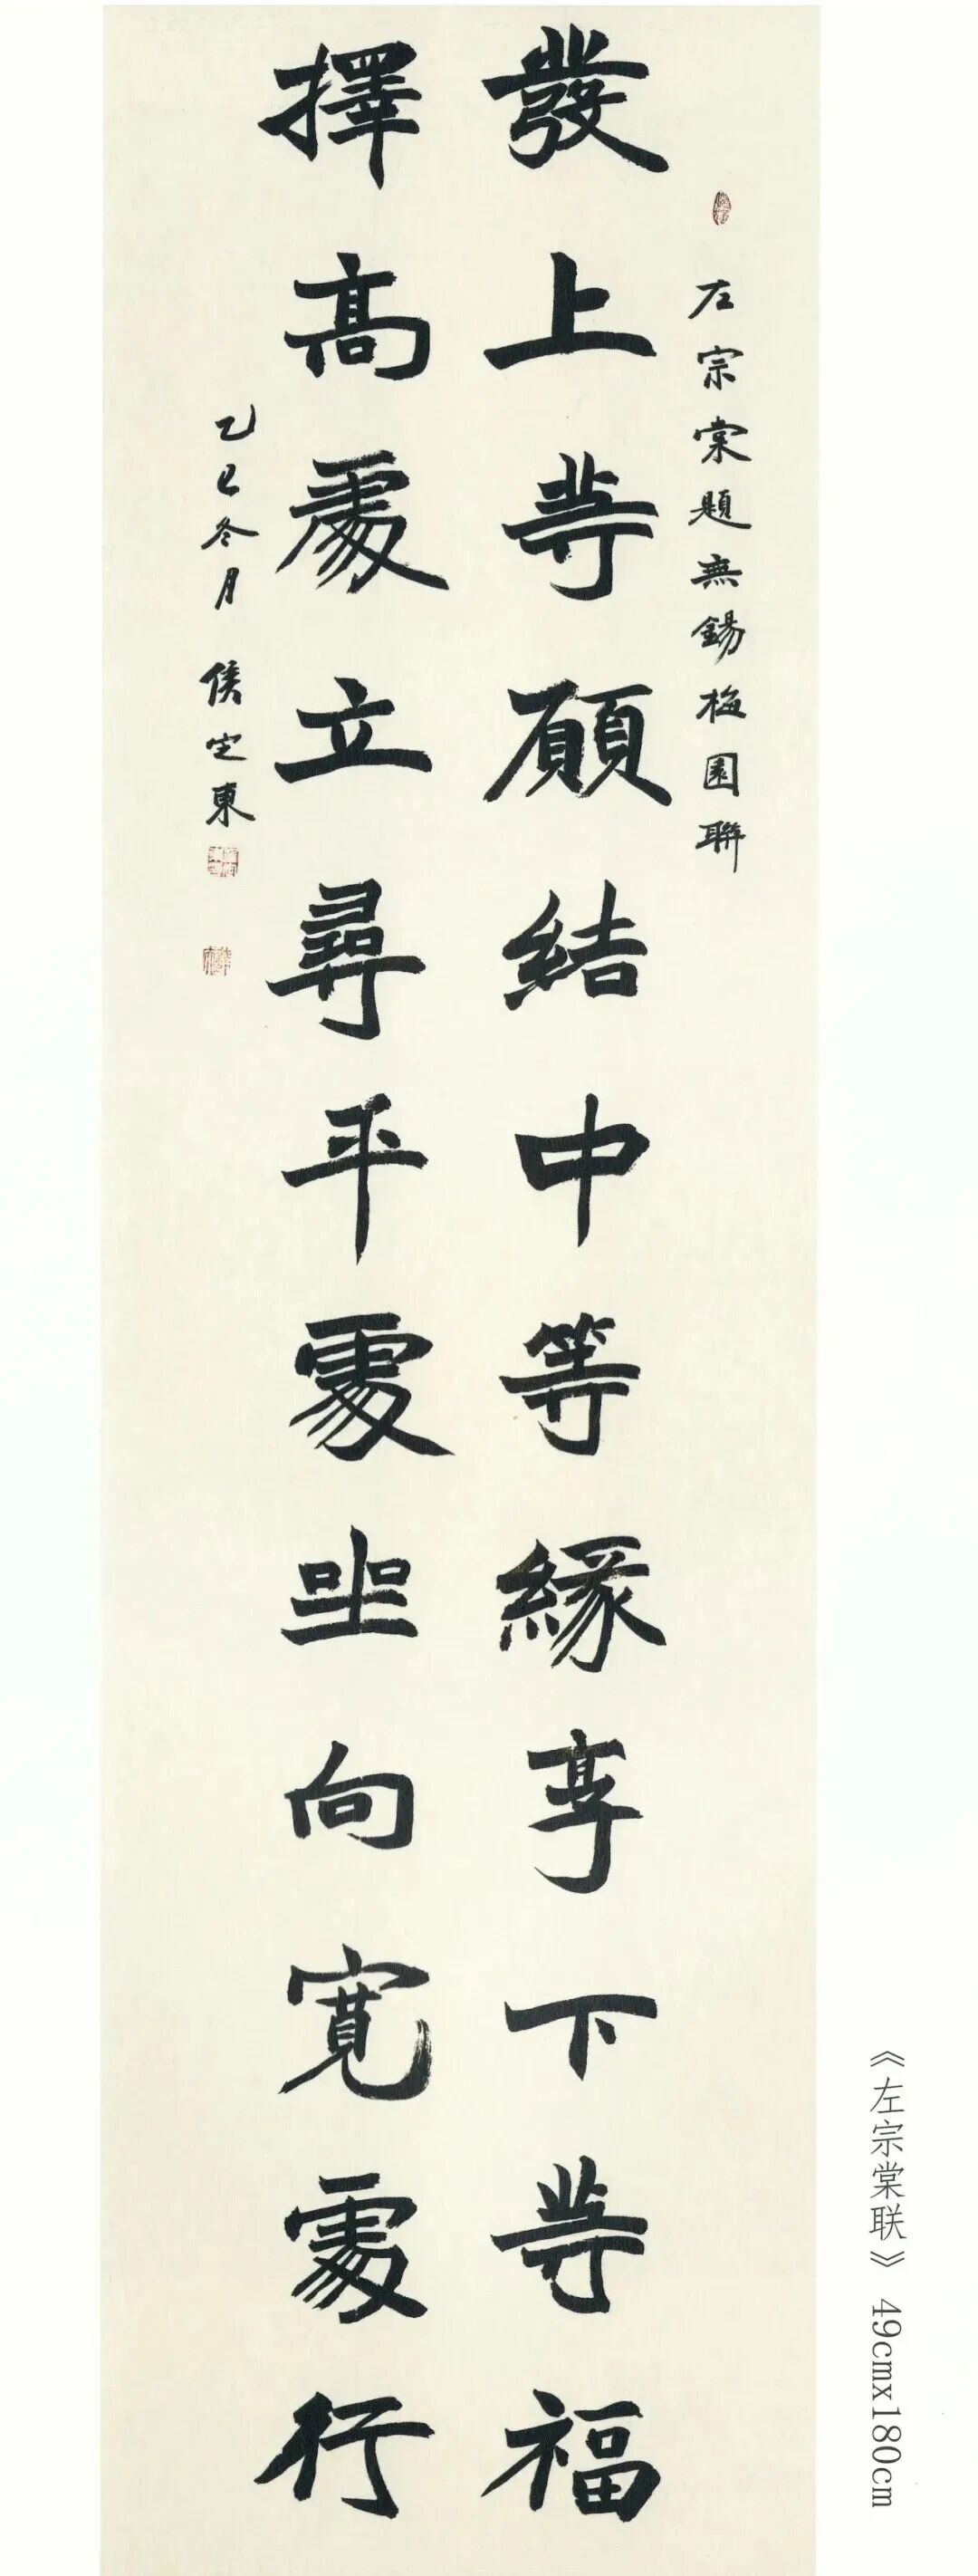 左宗棠題無錫梅園聯
發上等願結中等緣享下等福
擇高處立尋平處坐向寬處行
乙巳冬月 侯定東
《左宗棠联》 49cmx180cm